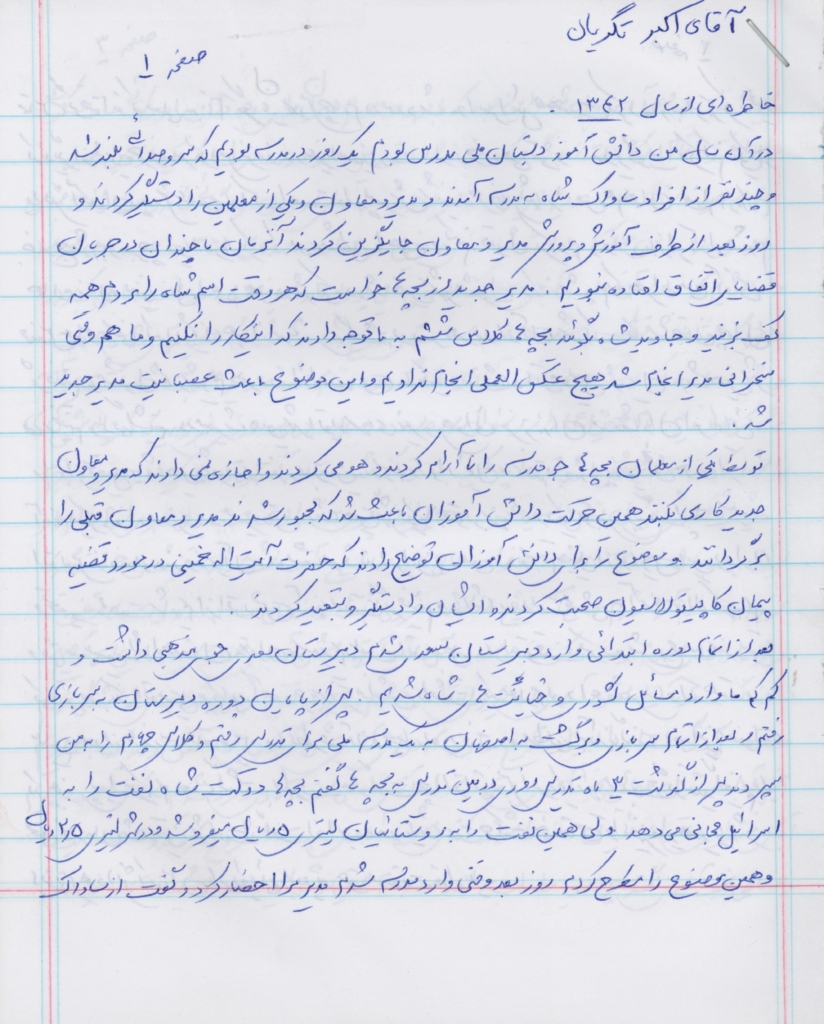 آقای اکبر تگریان
صفحه ۱
خاطره ای از سال ۱۳۴۲ .
در آن سال من دانش آموز دبستان ملی مدرس بودم یک روز در مدرسه بودیم که سر و صدائی بلند شد
و چند نفر از افراد ساواک شاه به مدرسه آمدند و مدیر و معاون و یکی از معلمین را دستگیر کردند و
روز بعد از طرف آموزش و پرورش مدیر و معاون جایگزین کردند آنزمان ما چندان در جریان
قضایای اتفاق افتاده نبودیم . مدیر جدید از بچه ها خواست که هر وقت اسم شاه را بردم همه
کف بزنید و جاوید شاه بگوئید بچه ها کلاس ششم به ما توجه دادند که اینکار را نکنیم و ما هم وقتی
سخرانی مدیر انجام شد هیچ عکس العملی انجام ندادیم و این موضوع باعث عصبانیت مدیر جدید
شد .
توسط یکی از معلمان بچه ها جو مدرسه را نا آرام کردند و هو می کردند و اجازه نمی دادند که مدیر و معاون
جدید کاری بکنند همین حرکت دانش آموزان باعث شد که مجبور شدند مدیر و معاون قبلی را
برگردانند و موضوع را برای دانش آموزان توضیح دادند که حضرت آیت اله خمینی در مورد قضیه
پیمان کاپیتولاسیون صحبت کردند و ایشان را دستگیر و تبعید کردند .
بعد از اتمام دوره ابتدائی وارد دبیرستان سعدی شدم دبیرستان سعدی جوی مذهبی داشت و
کم کم ما وارد مسائل کشوری و خیانت های شاه شدیم . پس از پایان دوره دبیرستان به سربازی
رفتم و بعد از اتمام سربازی و برگشت به اصفهان به یک مدرسه ملی برای تدریس رفتم و کلاس چهارم را به من
سپردند پس از گذشت ۳ ماه تدریس روزی در بین تدریس به بچه ها گفتم بچه ها دولت شاه نفت را به
اسرائیل مجانی می دهد ولی همین نفت را به روستائیان لیتری ۵ ریال میفروشد و در شهر لیتری ۲/۵ ریال
و همین موضوع را مطرح کردم روز بعد وقتی وارد مدرسه شدم مدیر مرا احضار کرد و گفت از ساواک